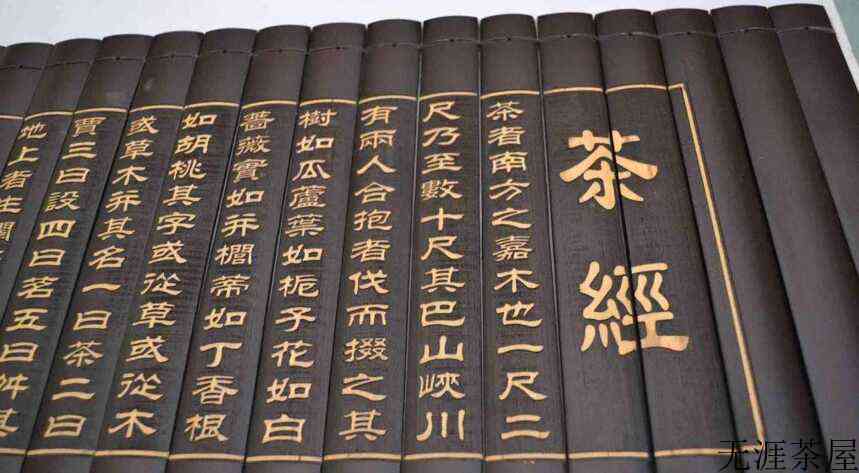 茶經
茶者南方之嘉木也一尺二
尺乃至數十尺其巴山峽川
有兩人合抱者伐而掇之其
樹如瓜蘆葉如梔子花如白
薔薇實如并櫚蒂如丁香根
如胡桃其字或從草或從木
或草木并其名一曰茶二曰
賈三曰設四曰茗五曰舛其
地上者生
无涯茶屋